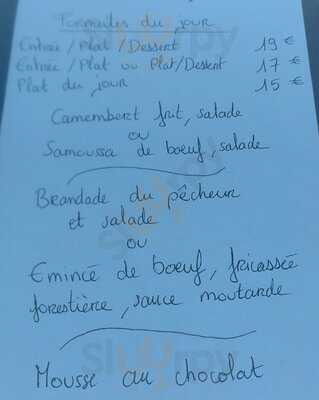 Formules du jour
Entrée / Plat / Dessert 19 €
Entrée / Plat ou Plat/Dessert 17 €
Plat du jour 15 €
Camembert frit, salade
ou
Samoussa de bœuf, salade
Brandade du pêcheur
et salade
ou
Emincé de bœuf, fricassée
forestière, sauce moutarde
Mousse au chocolat